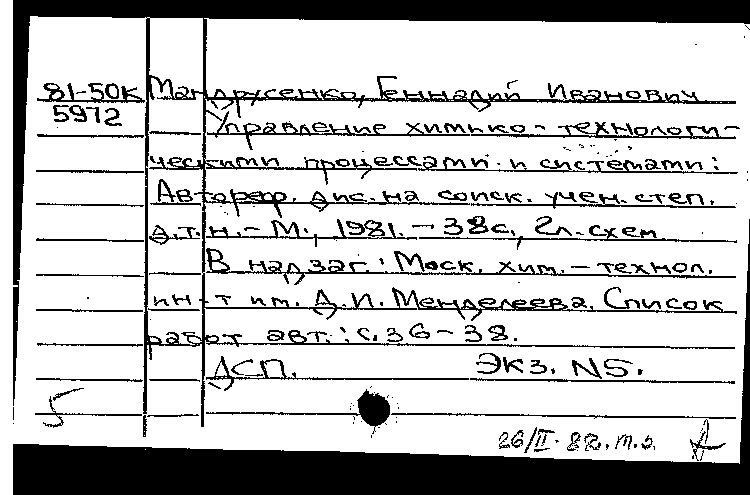 81-50к Мандрусенко, Геннадий Иванович
5972 Управление химико-технологи-
ческими процессами и системами:
Автореф. дис. на соиск. учен. степ.
д.т.н. - М., 1981. - 38с., 2л. схем
В надзаг.: Моск. хим.-технол.
ин-т им. Д.И. Менделеева. Список
работ авт.: с.36-38.
ДСП. Экз. N5.
5
26/II-82. т.г.